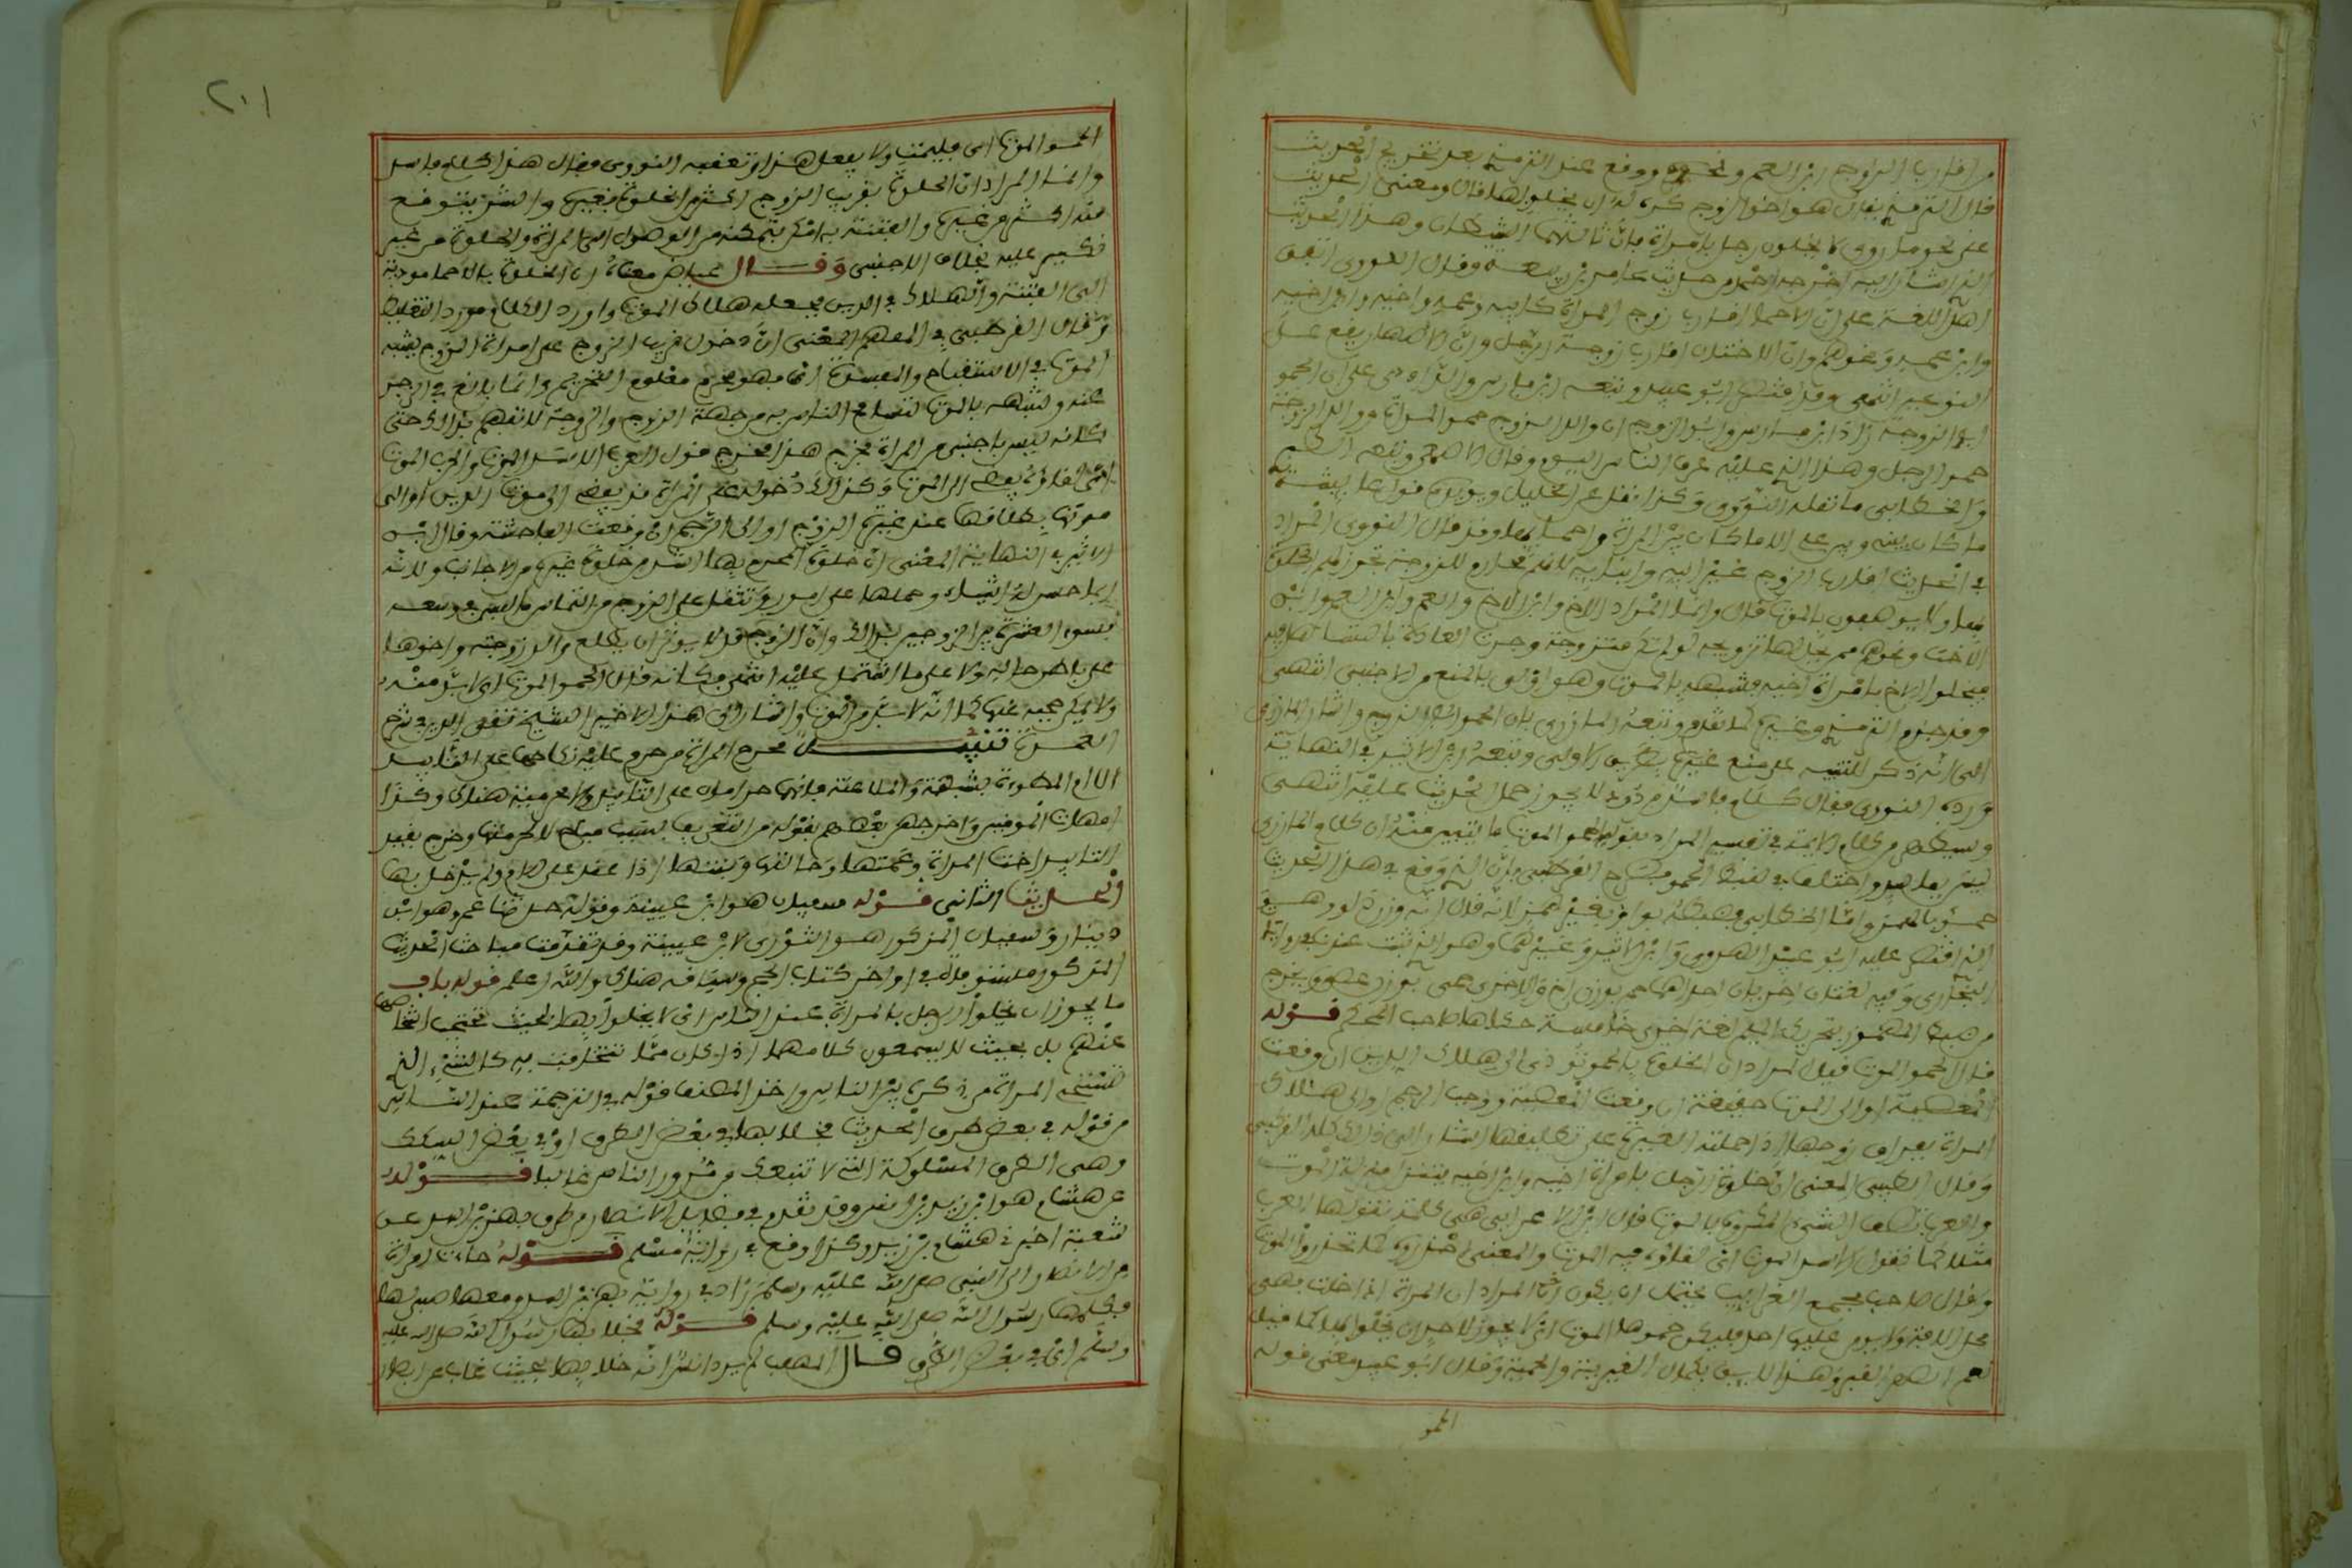 من اقارب الزوج ابن العم ونحوه ووقع عند الترمذي بعد تخريج الحديث
قال الترمذي يقال هو اخو الزوج كره له ان يخلو بها قال ومعنى الحديث
على نحو ما روي لا يخلون رجل بامراة فان ثالثهما الشيطان وهذا الحديث
الذي اشار اليه اخرجه احمد من حديث عامر بن ربيعة وقال النووي اتفق
اهل اللغة على ان الاحما اقارب زوج المراة كابيه وعمه واخيه وابن اخيه
وابن عمه ونحوهم وان الاختان اقارب زوجة الرجل وان الاصهار يقع على
النوعين انتهى وقد اقتصر ابو عبيد وتبعه ابن فارس والداودي على ان الحمو
ابو الزوجة زاد ابن فارس وابو الزوج ان والد الزوج حمو المراة ووالد الزوجة
حمو الرجل وهذا الذي عليه عرف الناس اليوم وقال الاصمعي وتبعه الطبري
والخطابي ما نقله النووي وكذا نقل عن الخليل ويويده قول عايشة
ما كان بيني وبين علي الا ما كان بين المراة واحمايها وقد قال النووي المراد
في الحديث اقارب الزوج غير ابايه وابنايه لانهم محارم للزوجة تجوز لهم الخلوة
بها ولا يوصفون بالموت قال وانما المراد الاخ وابن الاخ والعم وابن العم وابن
الاخت ونحوهم ممن يحل لها تزويجه لو لم تكن متزوجة وجرت العادة بالتساهل فيه
فيخلو الاخ بامراة اخيه فشبهه بالموت وهو اولى بالمنع من الاجنبي انتهى
وقد جزم الترمذي وغيره كما تقدم وتبعه المازري بان الحمو ابو الزوج واشار المازري
الى انه ذكر للتنبيه على منع غيره بطريق الاولى وتبعه ابن الاثير في النهاية
ورده النووي فقال كلام فاسد مردود لا يجوز حمل الحديث عليه انتهى
وسيظهر من كلام الايمة في تفسير المراد بقوله الحمو الموت ما يتبين منه ان كلام المازري
ليس بفاسد واختلف في لفظ الحمو فصرح القرطبي بان الذي وقع في هذا الحديث
حمؤ بالهمز واما الخطابي فضبطه بواو بغير همز لانه قال انه وزن دلو وهو
الذي اقتصر عليه ابو عبيد الهروي وابن الاثير وغيرهما وهو الذي ثبت عندنا في روايات
البخاري وفيه لغتان اخريان احداهما حم بوزن اخ والاخرى حمى بوزن عصى ويخرج
من ضبط المهموز بتحريك الميم لغة اخرى خامسة حكاها صاحب المحكم قوله
قال الحمو الموت قيل المراد ان الخلوة بالحمو تودي الى هلاك الدين ان وقعت
المعصية او الى الموت حقيقة ان وقعت المعصية ووجب الرجم او الى هلاك
المراة بفراق زوجها اذا حملته الغيرة على تطليقها اشار الى ذلك كله القرطبي
وقال الطيبي المعنى ان خلوة الرجل بامراة اخيه وابن اخيه يتنزل منزلة الموت
والعرب تصف الشيء المكروه بالموت قال ابن الاعرابي هي كلمة تقولها العرب
مثلا كما تقول الاسد الموت اي لقاؤه فيه الموت والمعنى احذروه كما تحذروا الموت
وقال صاحب مجمع الغرايب يحتمل ان يكون المراد ان المراة اذا خلت فهي
محل الافة ولا يومن عليها احد فليكن حموها الموت اي لا يجوز لاحد ان يخلو بها كما قيل
نعم الصهر القبر وهذا لايق بكمال الغيرة والحمية وقال ابو عبيد معنى قوله
الحمو
٢٠١
الحمو الموت اي فليمت ولا يفعل هذا وتعقبه النووي فقال هذا كلام فاسد
وانما المراد ان الخلوة بقريب الزوج اكثر من الخلوة بغيره والشر يتوقع
منه اكثر من غيره والفتنة به امكن لتمكنه من الوصول الى المراة والخلوة من غير
نكير عليه بخلاف الاجنبي وقال عياض معناه ان الخلوة بالاحما مودية
الى الفتنة والهلاك في الدين فجعله هلاك الموت واورد الكلام مورد التغليظ
وقال القرطبي في المفهم المعنى ان دخول قريب الزوج على امراة الزوج يشبه
الموت في الاستقباح والمفسدة اي فهو محرم معلوم التحريم وانما بالغ في الزجر
عنه وشبهه بالموت لتسامح الناس به من جهة الزوج والزوجة لالفهم بذلك حتى
كانه ليس باجنبي من المراة فخرج هذا مخرج قول العرب الاسد الموت والحرب الموت
اي لقاؤه يفضي الى الموت وكذلك دخوله على المراة قد يفضي الى موت الدين او الى
موتها بطلاقها عند غيرة الزوج او الى الرجم ان وقعت الفاحشة وقال ابن
الاثير في النهاية المعنى ان خلوة المحرم بها اشد من خلوة غيره من الاجانب ولانه
ربما حسن لها اشياء وحملها على امور تثقل على الزوج من التماس ما ليس في وسعه
فتسوء العشرة بين الزوجين بذلك وان الزوج قد لا يوثر ان يطلع والد زوجته واخوها
على باطن حاله ولا على ما اشتمل عليه انتهى فكانه قال الحمو الموت اي لا بد منه
ولا يمكن حجبه عنها كما انه لا بد من الموت واشار الى هذا الاخير الشيخ تقي الدين في شرح
العمدة تنبيه محرم المراة من حرم عليه نكاحها على التابيد
الا ام الموطوة بشبهة والملاعنة فانهما حرامان على التابيد ولا محرمية هناك وكذا
امهات المومنين واخرجهن بعضهم بقوله من التعريف بسبب مباح لا لحرمتها وخرج بقيد
التابيد اخت المراة وعمتها وخالتها وبنتها اذا عقد على الام ولم يدخل بها
الحديث الثاني قوله سفيان هو ابن عيينة وقوله حدثنا عمرو هو ابن
دينار وسفيان المذكور هو الثوري لا ابن عيينة وقد تقدمت مباحث الحديث
المذكور مستوفاة في اواخر كتاب الحج وسياقه هناك والله اعلم قوله باب
ما يجوز ان يخلو الرجل بالمراة عند الناس اي لا يخلو بها بحيث تحتجب اشخاصهما
عنهم بل بحيث لا يسمعون كلامهما اذا كان مما تتخافت به كالشيء الذي
تستحي المراة من ذكره بين الناس واخذ المصنف قوله في الترجمة عند الناس
من قوله في بعض طرق الحديث فخلا بها في بعض الطرق او في بعض السكك
وهي الطرق المسلوكة التي لا تنفك عن مرور الناس غالبا قوله
عن هشام هو ابن زيد بن انس وقد تقدم في فضايل الانصار من طريق بهز بن اسد عن
شعبة اخبرني هشام بن زيد وكذا وقع في رواية مسلم قوله جاءت امراة
من الانصار الى النبي صلى الله عليه وسلم زاد في رواية بهز بن اسد ومعها صبي لها
فكلمها رسول الله صلى الله عليه وسلم قوله فخلا بها رسول الله صلى الله عليه
وسلم اي في بعض الطرق قال المهلب لم يرد انس انه خلا بها بحيث غاب عن ابصار